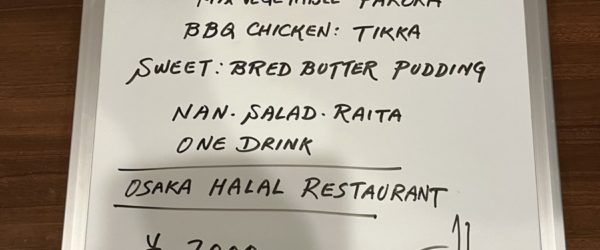 MIX VEGETABLE PAKORA
BBQ CHICKEN: TIKKA
SWEET: BRED BUTTER PUDDING
NAN. SALAD. RAITA
ONE DRINK
OSAKA HALAL RESTAURANT
¥